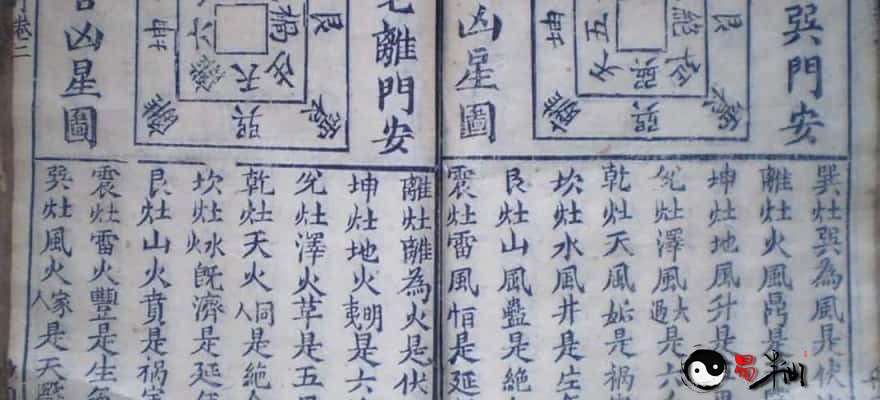 巽門安
坤
艮
五
天
巽
凶星圖
巽灶巽為風是伏
離灶火風鼎是
坤灶地風升是
兌灶澤風大過是六
乾灶天風姤是禍
坎灶水風井是生
艮灶山風蠱是絕
震灶雷風恒是延
離門安
艮
坤
六
禍
天
巽
凶星圖
離灶離為火是伏
坤灶地火明夷是六
兌灶澤火革是五
乾灶天火同人是絕
坎灶水火既濟是延
艮灶山火賁是禍
震灶雷火豐是生氣
巽灶風火家人是天醫
卷二
易半仙